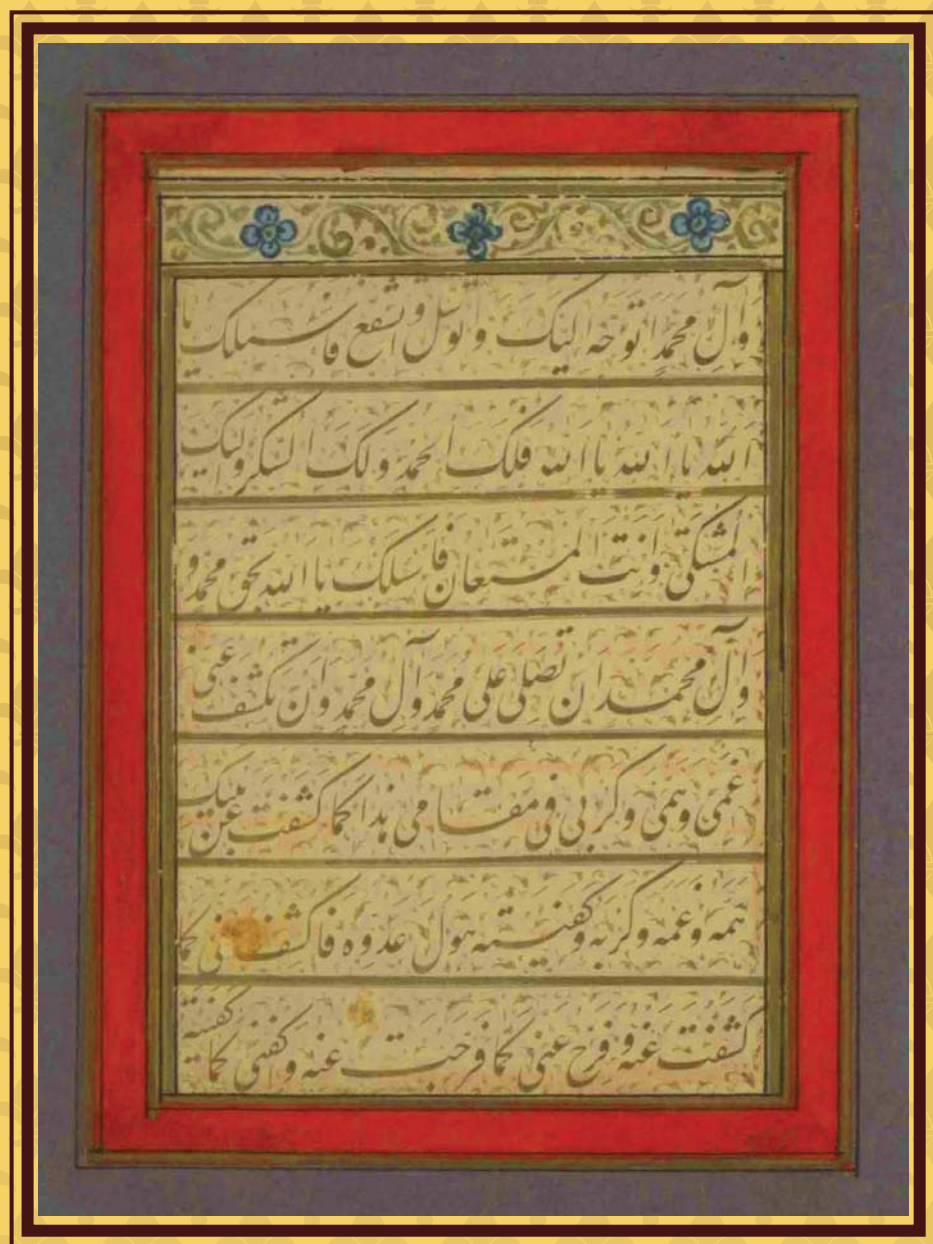 وآل محمد اتوجه الیک و اتوسل و اتشفع فاسئلک یا
الله یا الله یا الله فلک الحمد ولک الشکر والیک
المشتکی وانت المستعان فاسئلک یا الله بحق محمد و
وآل محمد ان تصلی علی محمد وآل محمد وان تکشف عنی
غمی وهمی وکربی فی مقامی هذا کما کشفت عن نبیک
همه وغمه وکربه وکفیته هول عدوه فاکشف عنی کما
کشفت عنه وفرج عنی کما فرجت عنه وکفنی کما کفیته